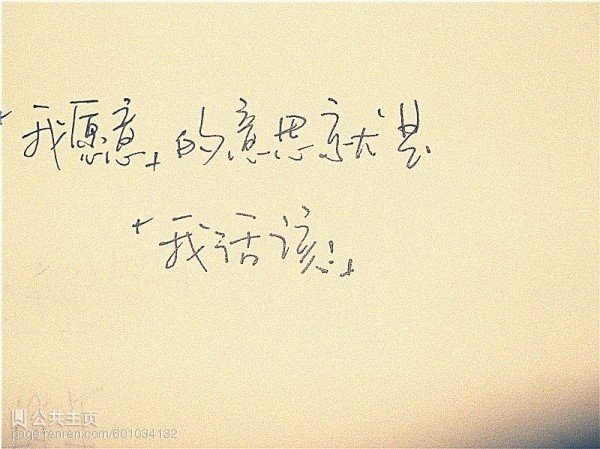 「我愿意」的意思就是
「我活该!」
公共主页
page.renren.com/601034132